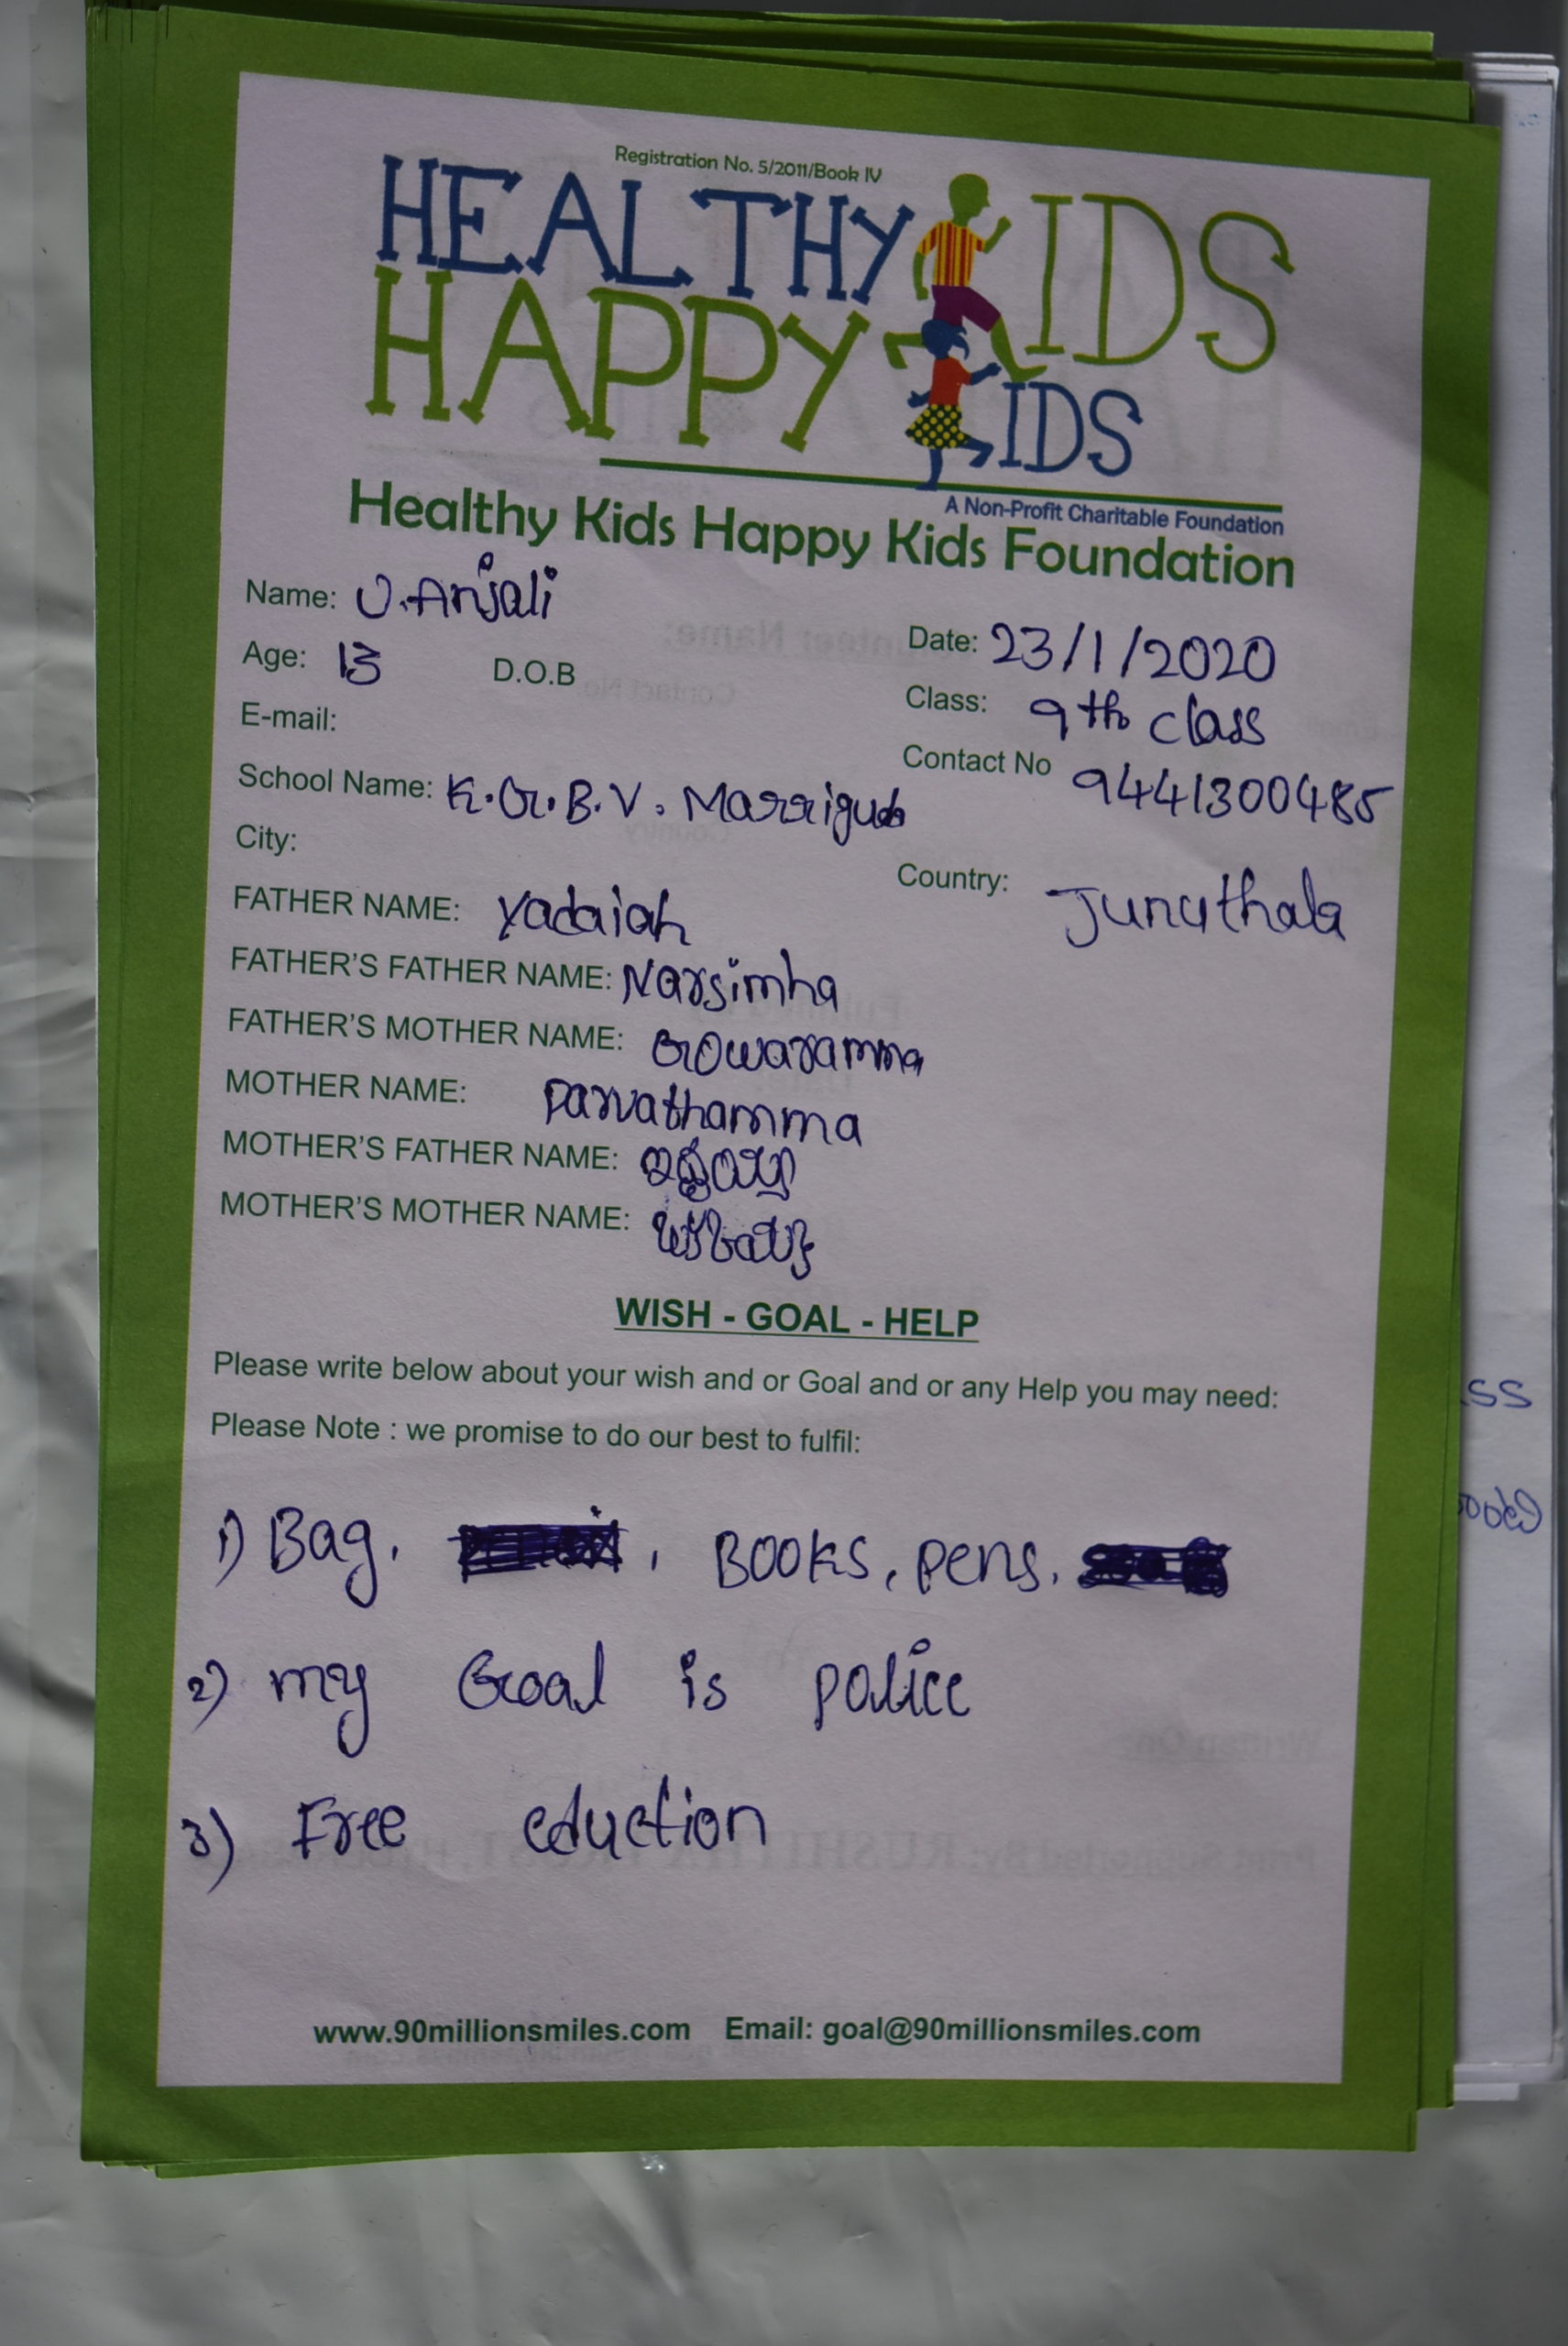 Registration No. 5/2011/Book IV
HEALTHY KIDS
HAPPY KIDS
A Non-Profit Charitable Foundation
Healthy Kids Happy Kids Foundation
Name: J.Anjali
Date: 23/1/2020
Age: 13 D.O.B
Class: 9th class
E-mail:
Contact No 9441300485
School Name: K.G.B.V. Marriguda
City:
Country: Junuthala
FATHER NAME: Yadaiah
FATHER'S FATHER NAME: Narsimha
FATHER'S MOTHER NAME: Gowaramma
MOTHER NAME: Parvathamma
MOTHER'S FATHER NAME:
MOTHER'S MOTHER NAME:
WISH - GOAL - HELP
Please write below about your wish and or Goal and or any Help you may need:
Please Note : we promise to do our best to fulfil:
1) Bag. , Books, pens.
2) my Goal is police
3) Free eduction
www.90millionsmiles.com Email: goal@90millionsmiles.com